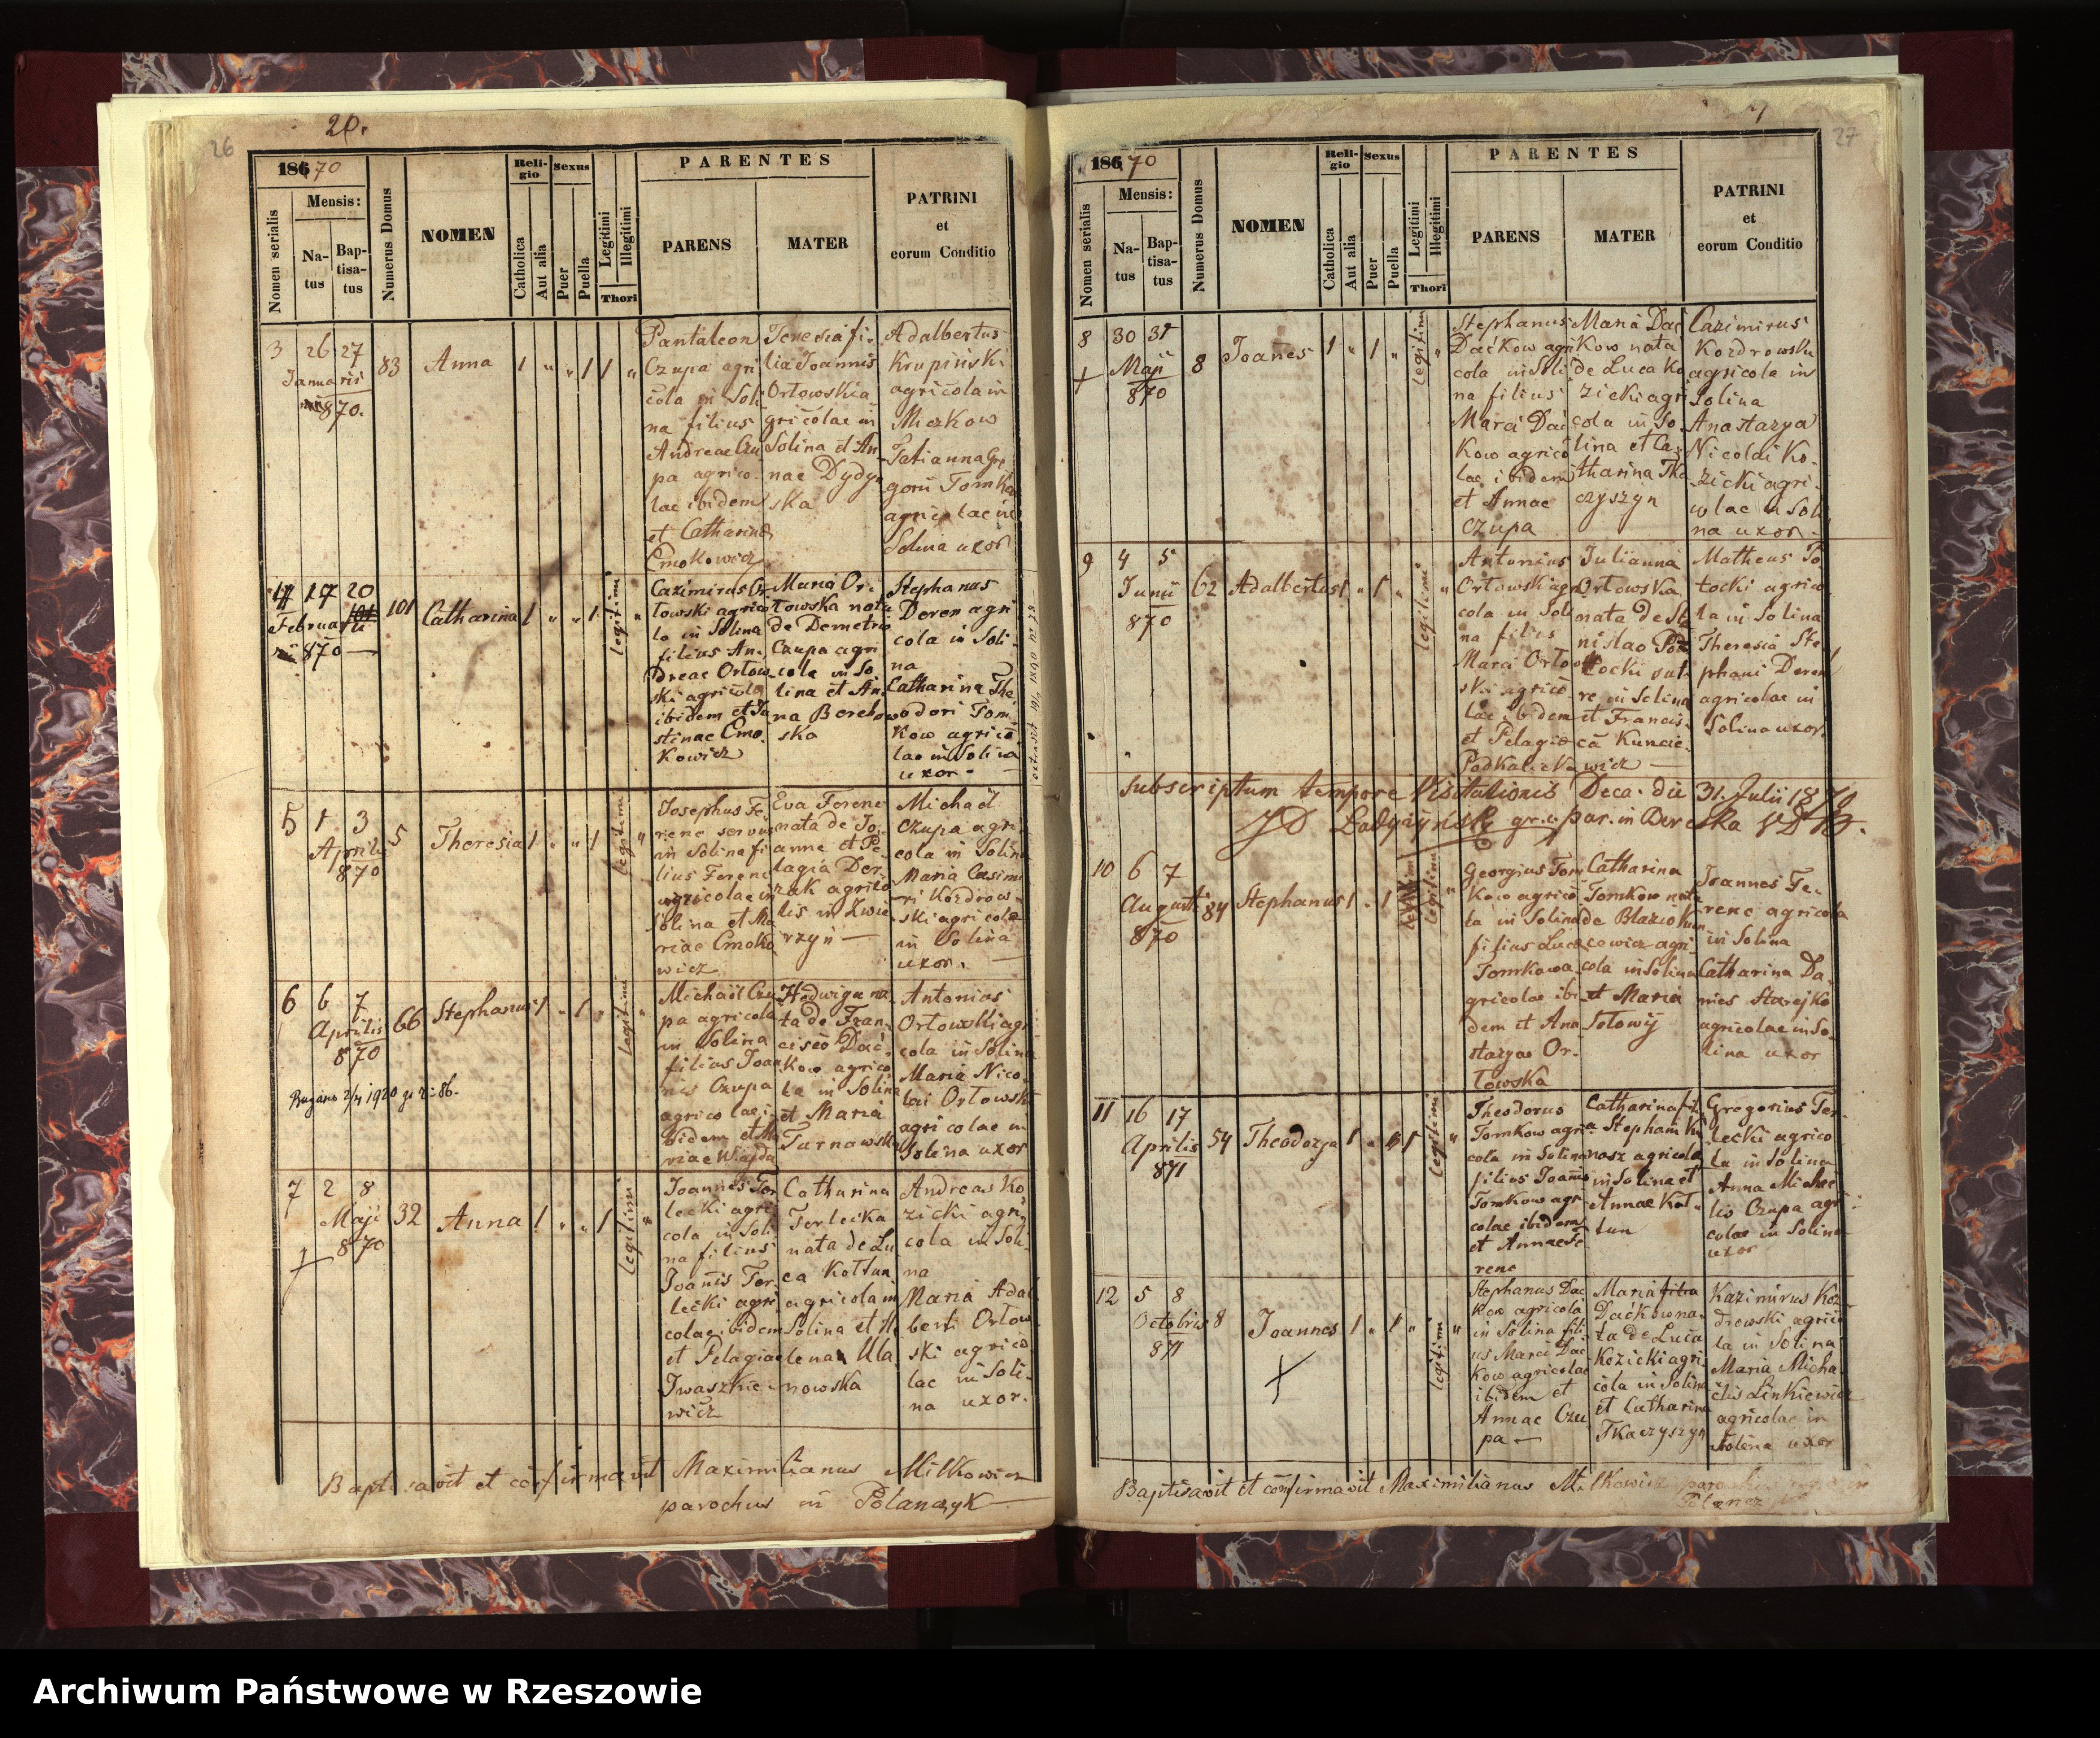 26
20.
18670
Mensis:
Nomen serialis
Na-
tus
Bap-
tisa-
tus
Numerus Domus
NOMEN
Reli-
gio
Catholica
Aut alia
Sexus
Puer
Puella
Legitimi
Illegitimi
Thori
PARENTES
PARENS
MATER
PATRINI
et
eorum Conditio
3 26 27 83 Anna 1 " " 1 1 "
Januarii
870.
Pantaleon
Czupa agri
cola in Soli
na filius
Andreae Czu
pa agrico-
lae ibidem
et Catharina
Cmokowicz
Teresia fi-
lia Joannis
Orłowski a
gricolae in
Solina et An-
nae Dydyn
ska
Adalbertus
Krupiński
agricola in
Myczkow
Tatianna Gre
gorii Tomków
agricolae in
Solina uxor
4 17 20 101 Catharina 1 " " 1 legitimi
Februarii
870
Cazimirus Or
łowski agrico
la in Solina
filius An-
dreae Orłow
ski agricola
ibidem et Ju
stinae Cmo-
kowicz
Maria Or-
łowska nata
de Demetrio
Czupa agri
cola in So
lina et An
na Borchow
ska
Stephanus
Deren agri
cola in Soli-
na
Catharina The
odori Tom
kow agrico
lae in Solina
uxor -
5 1 3 5 Theresia 1 " " 1 legitimi "
Aprilis
870
Josephus Fe-
renc servus
in Solina fi
lius Ferenc
agricolae in
Solina et Ma
riae Cmoko
wicz
Eva Ferenc
nata de Jo-
anne et Pe-
lagia Der-
zak agrico
lis in Zwie
rzyń —
Michaël
Czupa agri-
cola in Solina
Maria Casimi
ri Kozdrow-
ski agricolae
in Solina
uxor.
6 6 7 66 Stephanus 1 " 1 " legitimi "
Aprilis
870
Michaël Czu
pa agricola
in Solina
filius Joan
nis Czupa
agricolae i-
bidem et Ma
riae Wajda
Hedwiga na
ta de Fran-
cisco Dać-
kow agrico
la in Solina
et Maria
Turnawska
Antonius
Orłowski agri
cola in Solina
Maria Nico-
lai Orłowski
agricolae in
Solina uxor
7 2 8 32 Anna 1 " " 1 legitimi "
Maji
870
Joannes Ter
lecki agri
cola in Soli
na filius
Joannis Ter
lecki agri
colae ibidem
et Pelagiae
Iwaszkie-
wicz
Catharina
Terlecka
nata de Lu
ca Kołtun
agricola in
Solina et He
lena Ula
nowska
Andreas Ko
zicki agri
cola in Soli-
na
Maria Adal
berti Orłow
ski agrico
lae in Soli-
na uxor.
Baptisavit et confirmavit Maximilianus Milkowicz
parochus in Polanczyk
27
18670
Mensis:
Nomen serialis
Na-
tus
Bap-
tisa-
tus
Numerus Domus
NOMEN
Reli-
gio
Catholica
Aut alia
Sexus
Puer
Puella
Legitimi
Illegitimi
Thori
PARENTES
PARENS
MATER
PATRINI
et
eorum Conditio
8 30 31 8 Joanes 1 " 1 " legitimi "
Maji
870
Stephanus
Daćkow agri
cola in Soli
na filius
Marci Dać
kow agrico
lae ibidem
et Annae
Czupa
Maria Dać
kow nata
de Luca Ko
zicki agri
cola in So-
lina et Ca-
tharina Tka
czyszyn
Cazimirus
Kozdrowski
agricola in
Solina
Anastazya
Nicolai Ko-
zicki agri-
colae in Soli
na uxor.
9 4 5 62 Adalbertus 1 " 1 " legitimi "
Junii
870
Antonius
Orłowski agri
cola in Soli
na filius
Marci Orłow
ski agrico
lae ibidem
et Pelagiae
Podkalicka
Julianna
Orłowska
nata de Sta
nislao Po
tocki suto
re in Solina
et Francis-
ca Kuncie-
wicz —
Matheus Po
tocki agrico
la in Solina
Theresia Ste-
phani Deren
agricolae in
Solina uxor.
Subscriptum tempore Visitationis Deca. die 31. Julii 1870
10 6 7 84 Stephanus 1 " 1 legitimi "
Augusti
870
Georgius Tom
kow agrico
la in Solina
filius Lucae
Tomkow a
gricolae ibi
dem et Ana
stazyae Or-
łowska
Catharina
Tomkow nata
de Blazio Kun
cewicz agri-
cola in Solina
et Maria
Sołowij
Joannes Fe-
renc agricola
in Solina
Catharina Da-
nielis Starejko
agricolae in So-
lina uxor
11 16 17 54 Theodozya 1 " 1 legitimi "
Aprilis
871
Theodorus
Tomkow agri
cola in Solina
filius Joannis
Tomkow agri
colae ibidem
et Annae Fe
renc
Catharina fil
a Stephani Ku
nasz agricola
in Solina et
Annae Koł-
tun
Gregorius Ter-
lecki agrico
la in Solina
Anna Michae
lis Czupa agri
colae in Solina
uxor
12 5 8 8 Joannes 1 " 1 " legitimi "
Octobris
871
Stephanus Dać
kow agricola
in Solina fili
us Marci Dać
kow agricolae
ibidem et
Annae Czu
pa —
Maria filia
Daćkow na-
ta de Luca
Kozicki agri
cola in Solina
et Catharina
Tkaczyszyn
Kazimirus Koz-
drowski agrico
la in Solina
Maria Micha-
ëlis Linkiewicz
agricolae in
Solina uxor
Baptisavit et confirmavit Maximilianus Milkowicz parochus
Archiwum Państwowe w Rzeszowie